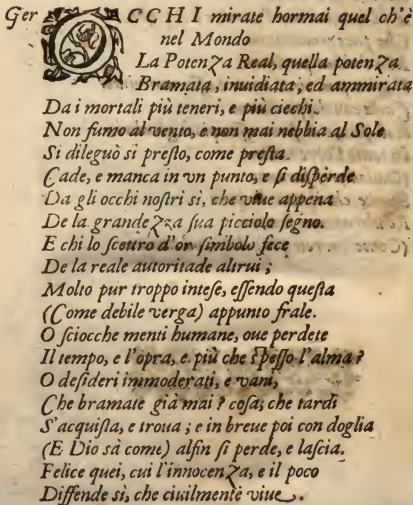 Ger OCCHI mirate hormai quel ch'è
nel Mondo
La Potenza Real, quella potenza
Bramata, inuidiata, ed ammirata
Da i mortali più teneri, e più ciechi.
Non fumo al vento, e non mai nebbia al Sole
Si dileguò sì presto, come presta
Cade, e manca in vn punto, e si disperde
Da gli occhi nostri sì, che viue appena
De la grandezza sua picciolo segno.
E chi lo scettro d'or simbolo fece
De la reale autoritade altrui;
Molto pur troppo intese, essendo questa
(Come debile verga) appunto frale.
O sciocche menti humane, oue perdete
Il tempo, e l'opra, e più che spesso l'alma?
O desideri immoderati, e vani,
Che bramate già mai? cosa, che tardi
S'acquista, e troua; e in breue poi con doglia
(E Dio sà come) alfin si perde, e lascia.
Felice quei, cui l'innocenza, e il poco
Diffende sì, che ciuilmente viue.